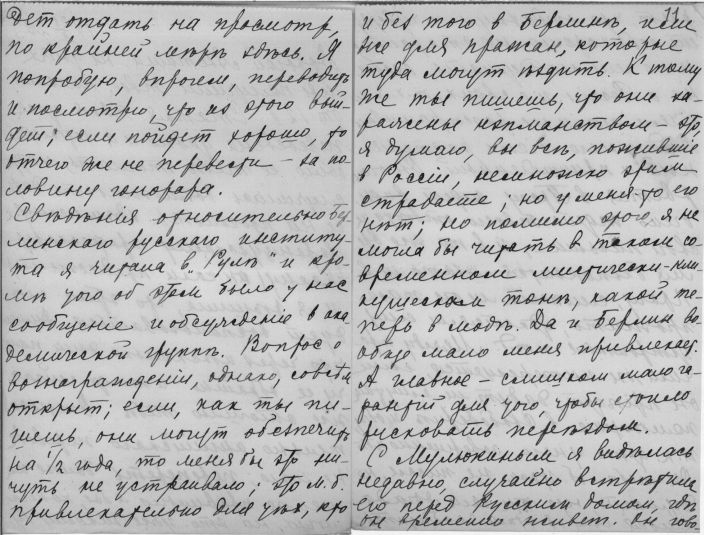 дет отдать на просмотр,
по крайней мѣрѣ здѣсь. Я
попробую, впрочем, переводить
и посмотрю, что из этого вый-
дет; если пойдет хорошо, то
отчего же не перевести – за по-
ловину гонорара.
Свѣдѣнія относительно Бер-
линскаго русскаго институ-
та я читала в „Рулѣ" и кро-
мѣ того об этом было у нас
сообщеніе и обсужденіе в ака-
демической группѣ. Вопрос о
вознагражденіи, однако, совсѣм
открыт; если, как ты пи-
шешь, они могут обезпечить
на 1/2 года, то меня бы это ни-
чуть не устраивало; это м. б.
привлекательно для тѣх, кто
11
и без того в Берлинѣ, или
же для пражан, которые
туда могут ѣздить. К тому
же ты пишешь, что они за-
ражены нэпманством – это,
я думаю, вы всѣ, пожившіе
в Россіи, немножко этим
страдаете; но у меня-то его
нѣт; но помимо этого я не
могла бы читать в таком со-
временном мистически-кли-
кушеском тонѣ, какой те-
перь в модѣ. Да и Берлин во-
обще мало меня привлекает.
А главное – слишком мало га-
рантій для того, чтобы стоило
рисковать переѣздом.
С Мулюкиным я видѣлась
недавно, случайно встрѣтила
его перед Русским домом, гдѣ
он временно живет. Он гово-